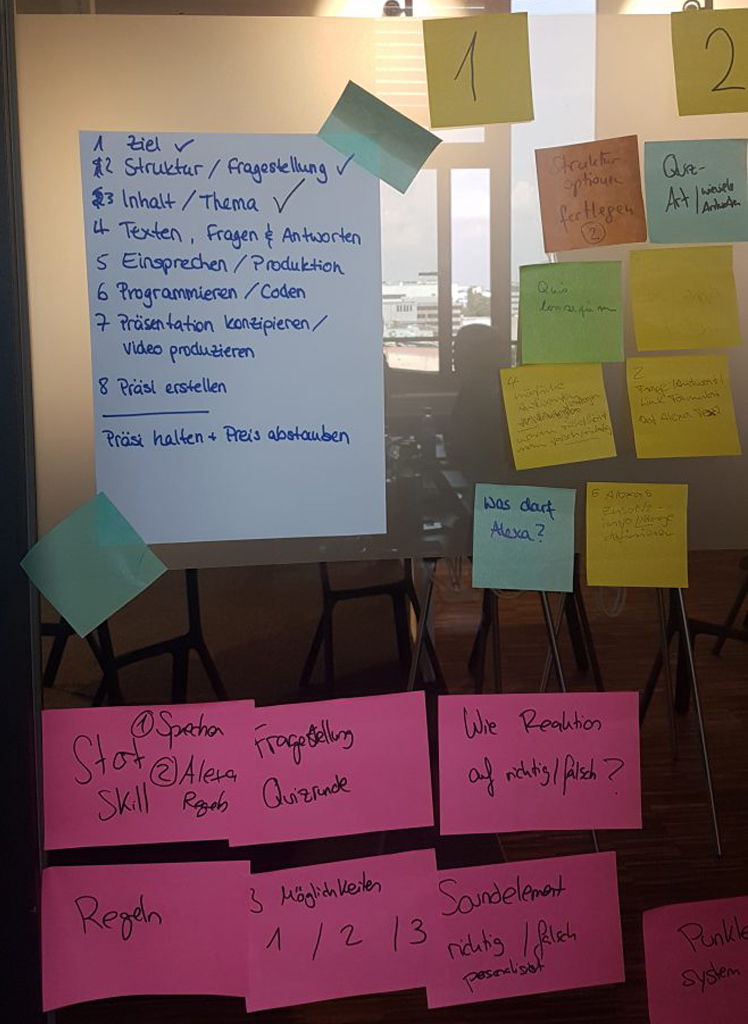 1
2
1 Ziel ✓
2 Struktur / Fragestellung ✓
3 Inhalt / Thema ✓
4 Texten, Fragen & Antworten
5 Einsprechen / Produktion
6 Programmieren / Coden
7 Präsentation konzipieren /
Video produzieren
8 Präsi erstellen
Präsi halten + Preis abstauben
Struktur
optionen
festlegen
2
Quiz-
Art / wieviele
Antworten
Quiz
4
mögliche
2
Frage/Antwort/
Link Formulier
auf Alexa Text
Was darf
Alexa?
6 Alexas
definieren
Start
Skill
① Sprechen
② Alexa
Regeln
Fragestellung
Quizrunde
Wie Reaktion
auf richtig/falsch?
Regeln
3 Möglichkeiten
1 / 2 / 3
Soundelement
richtig / falsch
personalisiert
Punkte
system